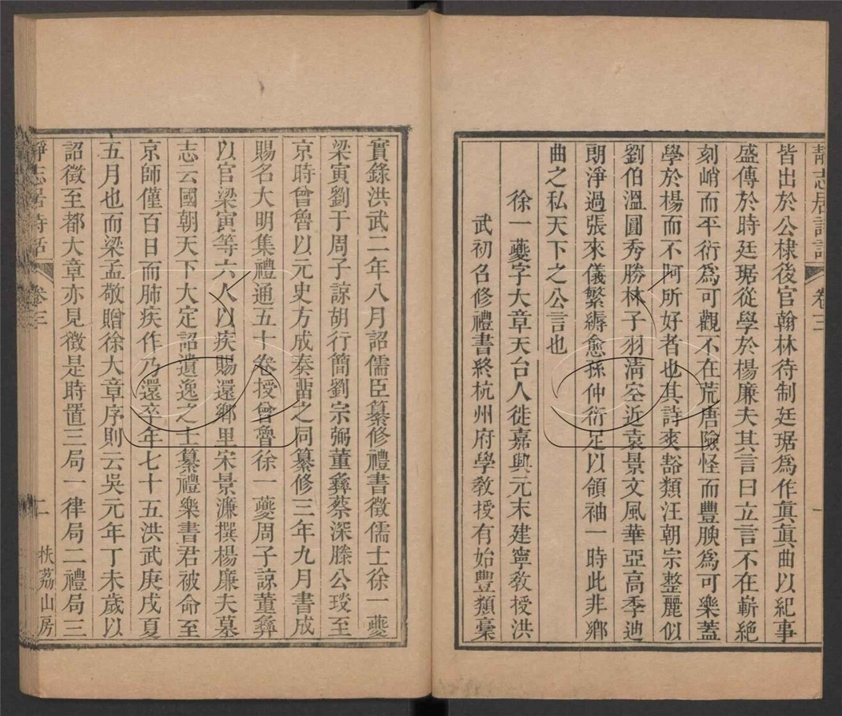 靜志居詩話 卷三 一
皆出於公棣後官翰林待制廷琚爲作眞眞曲以紀事
盛傳於時廷琚從學於楊廉夫其言曰立言不在嶄絶
刻峭而平衍爲可觀不在荒唐險怪而豐腴爲可樂蓋
學於楊而不阿所好者也其詩爽豁類汪朝宗整麗似
劉伯溫圓秀勝林子羽清空近袁景文風華亞高季迪
朗淨過張來儀繁縟愈孫仲衍足以領袖一時此非鄉
曲之私天下之公言也
徐一夔字大章天台人徙嘉興元末建寧教授洪
武初名修禮書終杭州府學教授有始豐類稾
實錄洪武二年八月詔儒臣纂修禮書徵儒士徐一夔
梁寅劉于周子諒胡行簡劉宗弼董彝蔡深滕公琰至
京時曾魯以元史方成奏畱之同纂修三年九月書成
賜名大明集禮通五十卷授曾魯徐一夔周子諒董彝
以官梁寅等六人以疾賜還鄉里宋景濂撰楊廉夫墓
志云國朝天下大定詔遺逸之士纂禮樂書君被命至
京師僅百日而肺疾作乃還卒年七十五洪武庚戌夏
五月也而梁孟敬贈徐大章序則云吳元年丁未歲以
詔徵至都大章亦見徵是時置三局一律局二禮局三
靜志居詩話 卷三 二 扶荔山房